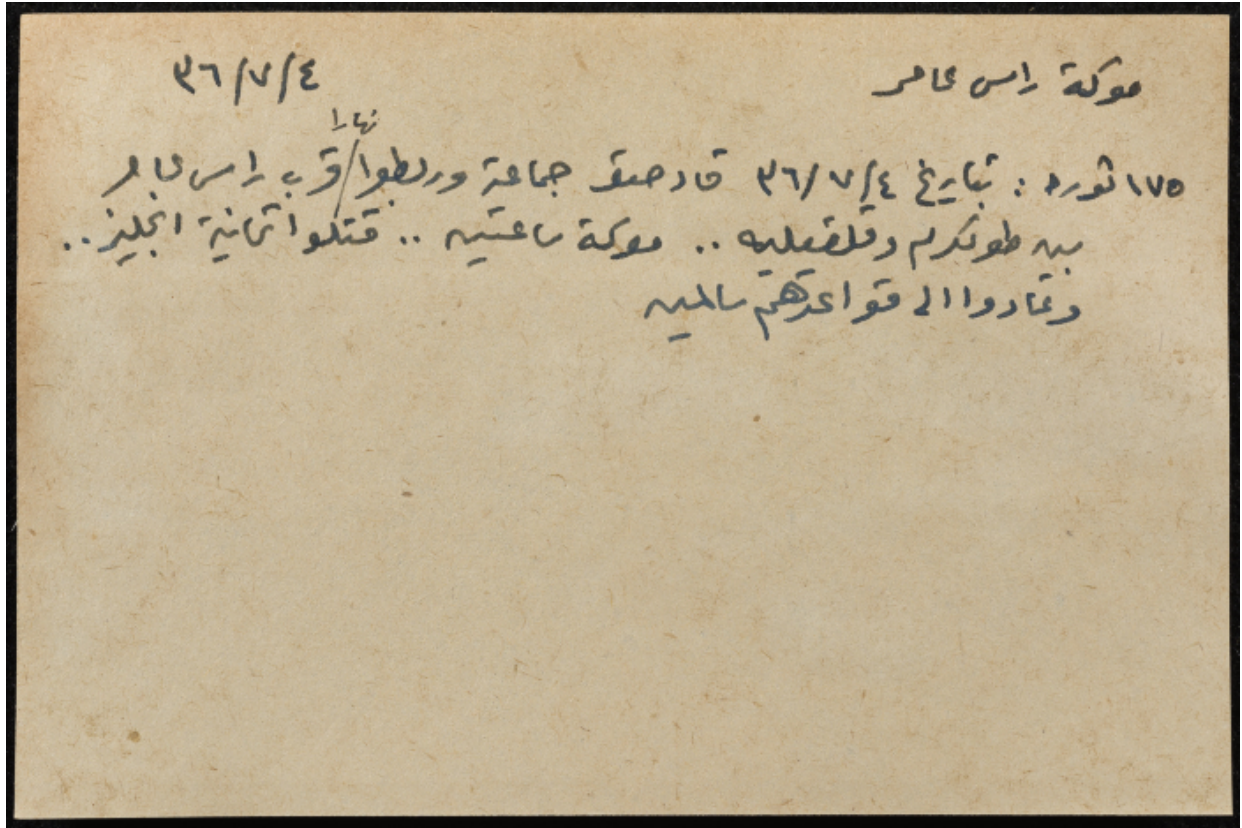 معركة راس عامر ٣٦/٧/٤
نهارا
١٧٥ ثوره : بتاريخ ٣٦/٧/٤ قاد جماعة وربطوا / قرب راس عامر
بين طولكرم وقلقيليه .. معركة ساعتين .. قتلوا ثمانية انجليز ..
وعادوا الى قواعدهم سالمين